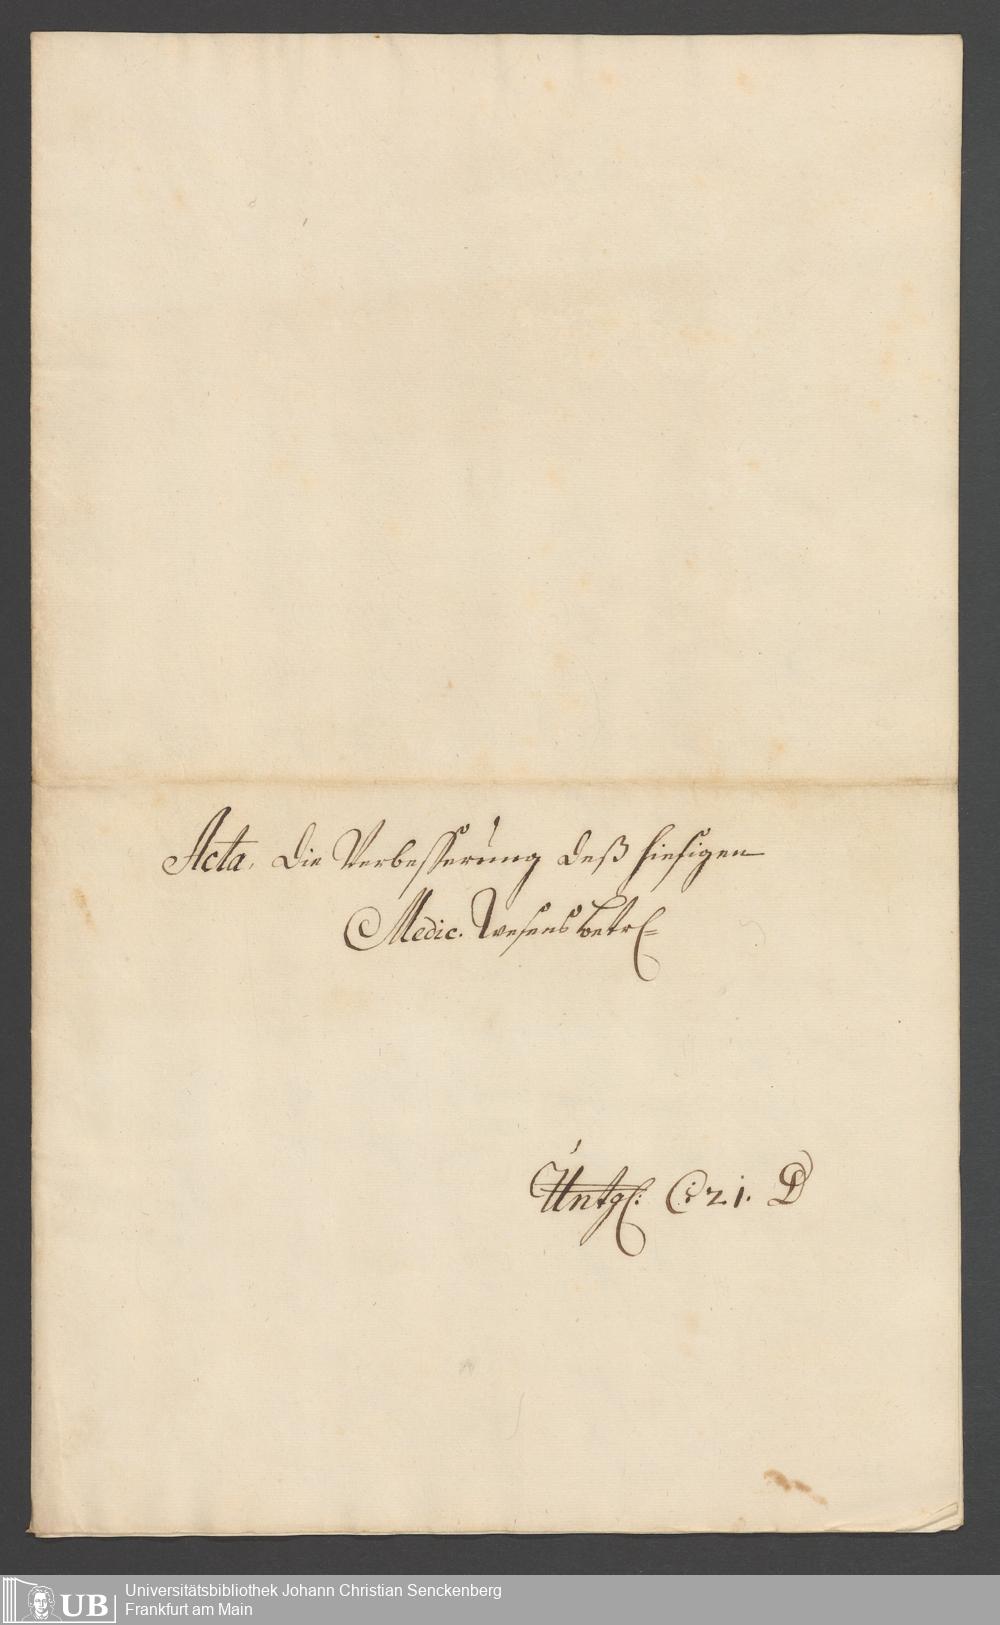 Acta, die Verbesserung deß hiesigen
Medic. Wesens betrl=
C: 21. D
UB
Universitätsbibliothek Johann Christian Senckenberg
Frankfurt am Main